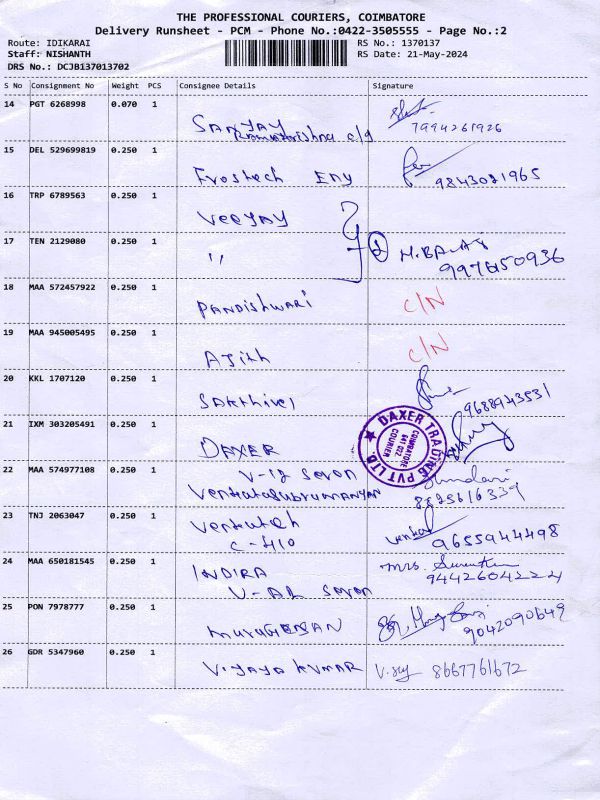 THE PROFESSIONAL COURIERS, COIMBATORE
Delivery Runsheet - PCM - Phone No.:0422-3505555 - Page No.:2
Route: IDIKARAI RS No.: 1370137
Staff: NISHANTH RS Date: 21-May-2024
DRS No.: DCJB137013702
S No Consignment No Weight PCS Consignee Details Signature
14 PGT 6268998 0.070 1
SANJAY
Ramakrishna c/g 7994261926
15 DEL 529699819 0.250 1
Frostech Eny 9843021965
16 TRP 6789563 0.250 1
VEEJAY
17 TEN 2129080 0.250 1
" M.BALAJI
9976150936
18 MAA 572457922 0.250 1
PANDISHWARI C/N
19 MAA 945005495 0.250 1
AJith C/N
20 KKL 1707120 0.250 1
SAKTHIVEL 9688943531
21 IXM 303205491 0.250 1
DAXER
DAXER TRADING PVT LTD.
COIMBATORE
641 022
COURIER
22 MAA 574977108 0.250 1
V-12 Seven
VENKATASUBRUMANYAN 8825616339
23 TNJ 2063047 0.250 1
Venkatesh
C-410 Venkat 9655944498
24 MAA 650181545 0.250 1
INDIRA Mrs.
V-AL Seven 9442604224
25 PON 7978777 0.250 1
MURUGESAN 9042090649
26 GDR 5347960 0.250 1
VIJAYA KUMAR V.jay 8667761672